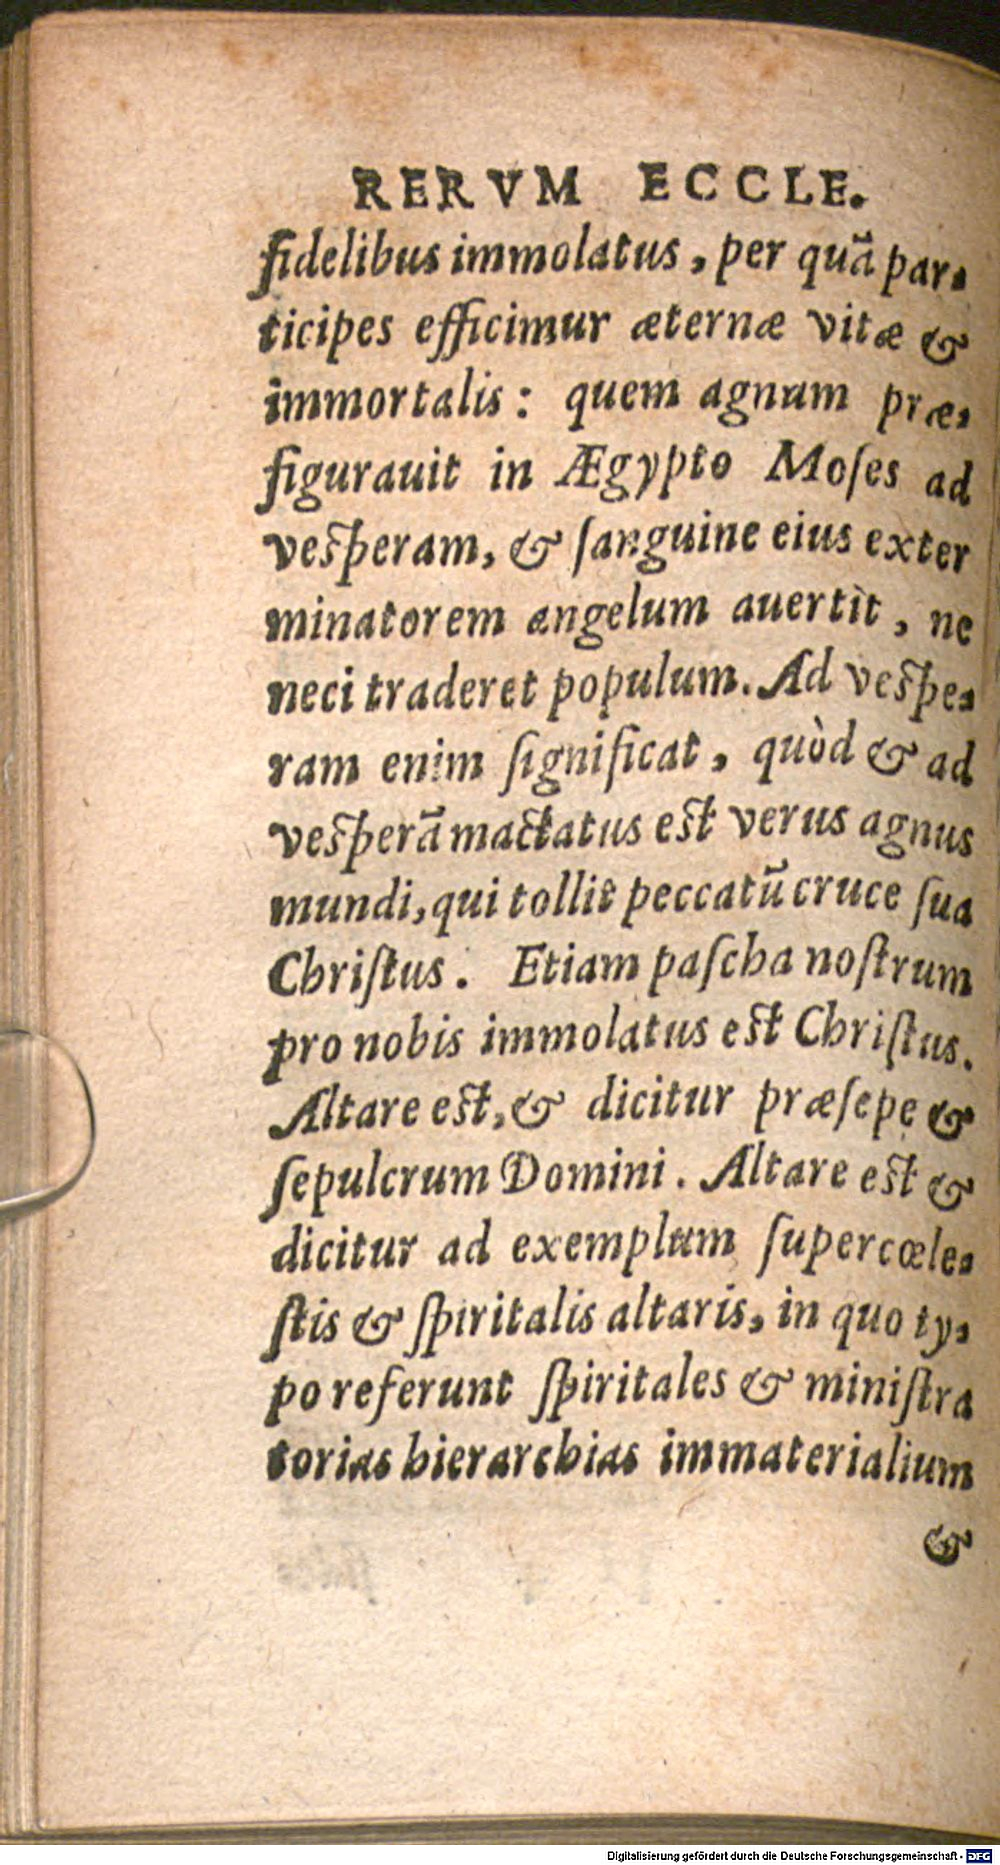 RERVM ECCLE.
fidelibus immolatus, per quã par-
ticipes efficimur æternæ vitæ &
immortalis: quem agnum præ-
figurauit in Ægypto Moſes ad
veſperam, & ſanguine eius exter
minatorem angelum auertit, ne
neci traderet populum. Ad veſpe-
ram enim ſignificat, quòd & ad
veſperã mactatus eſt verus agnus
mundi, qui tollit peccatũ cruce ſua
Chriſtus. Etiam paſcha noſtrum
pro nobis immolatus eſt Chriſtus.
Altare eſt, & dicitur præſepe &
ſepulcrum Domini. Altare eſt &
dicitur ad exemplum ſupercœle-
ſtis & ſpiritalis altaris, in quo ty-
po referunt ſpiritales & miniſtra
torias hierarchias immaterialium
&
Digitalisierung gefördert durch die Deutsche Forschungsgemeinschaft - DFG